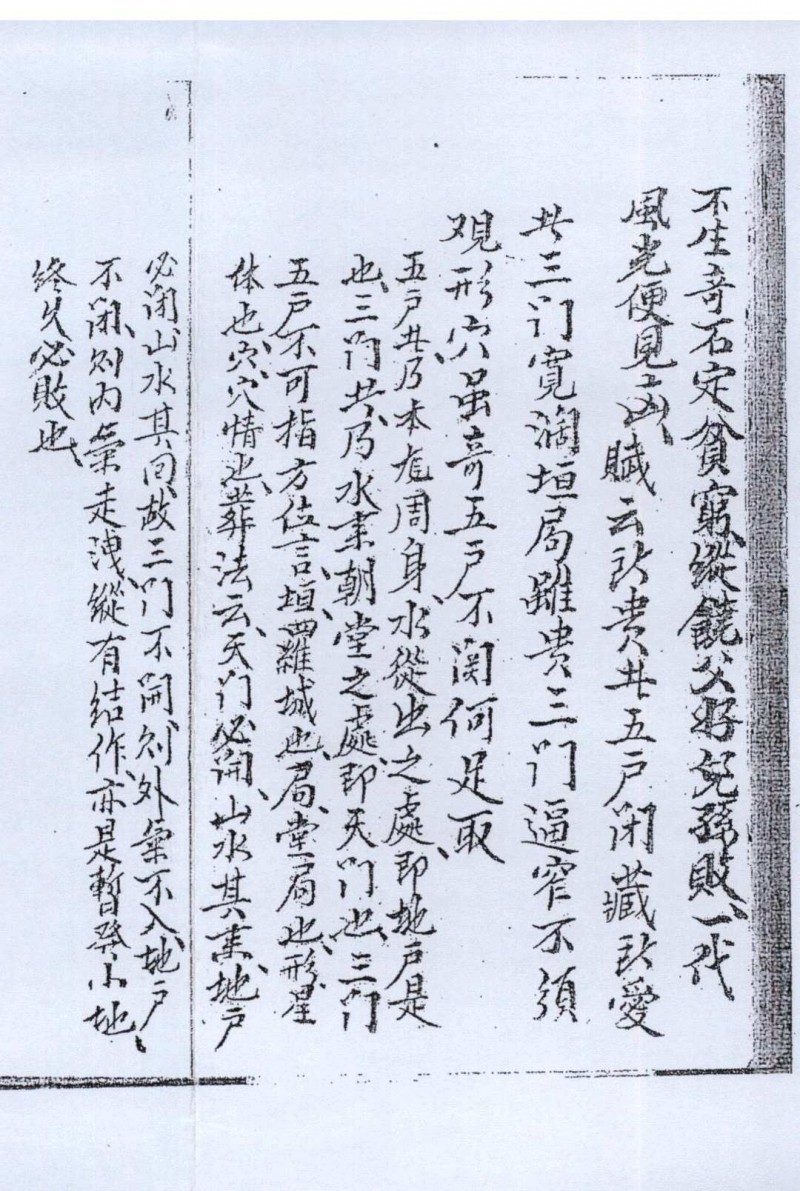 不生奇石定貧窮縱饒父好兒孫敗一代
風光便見凶賦云所貴共五戶閉藏所愛
共三门寬濶垣局雖贵三门逼窄不須
观形穴虽奇五戶不関何足取
五戶共乃本身周身水從出之處即地戶是
也三門共乃水来朝堂之處即天门也三门
五戶不可指方位言垣羅城也局堂局也形星
体也穴穴情也葬法云天门必開山水其来地戶
必闭山水其囬故三门不開則外氣不入地戶
不闭則内氣走洩縱有结作亦是暫發小地
終久必敗也